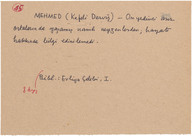 MEHMED (Kefeli Derviş) – Onyedinci asır
ortalarında yaşamış namlı neyzenlerden, hayatı
hakkında bilgi edinilemedi.
Bibl.: Evliya Çelebi, I.